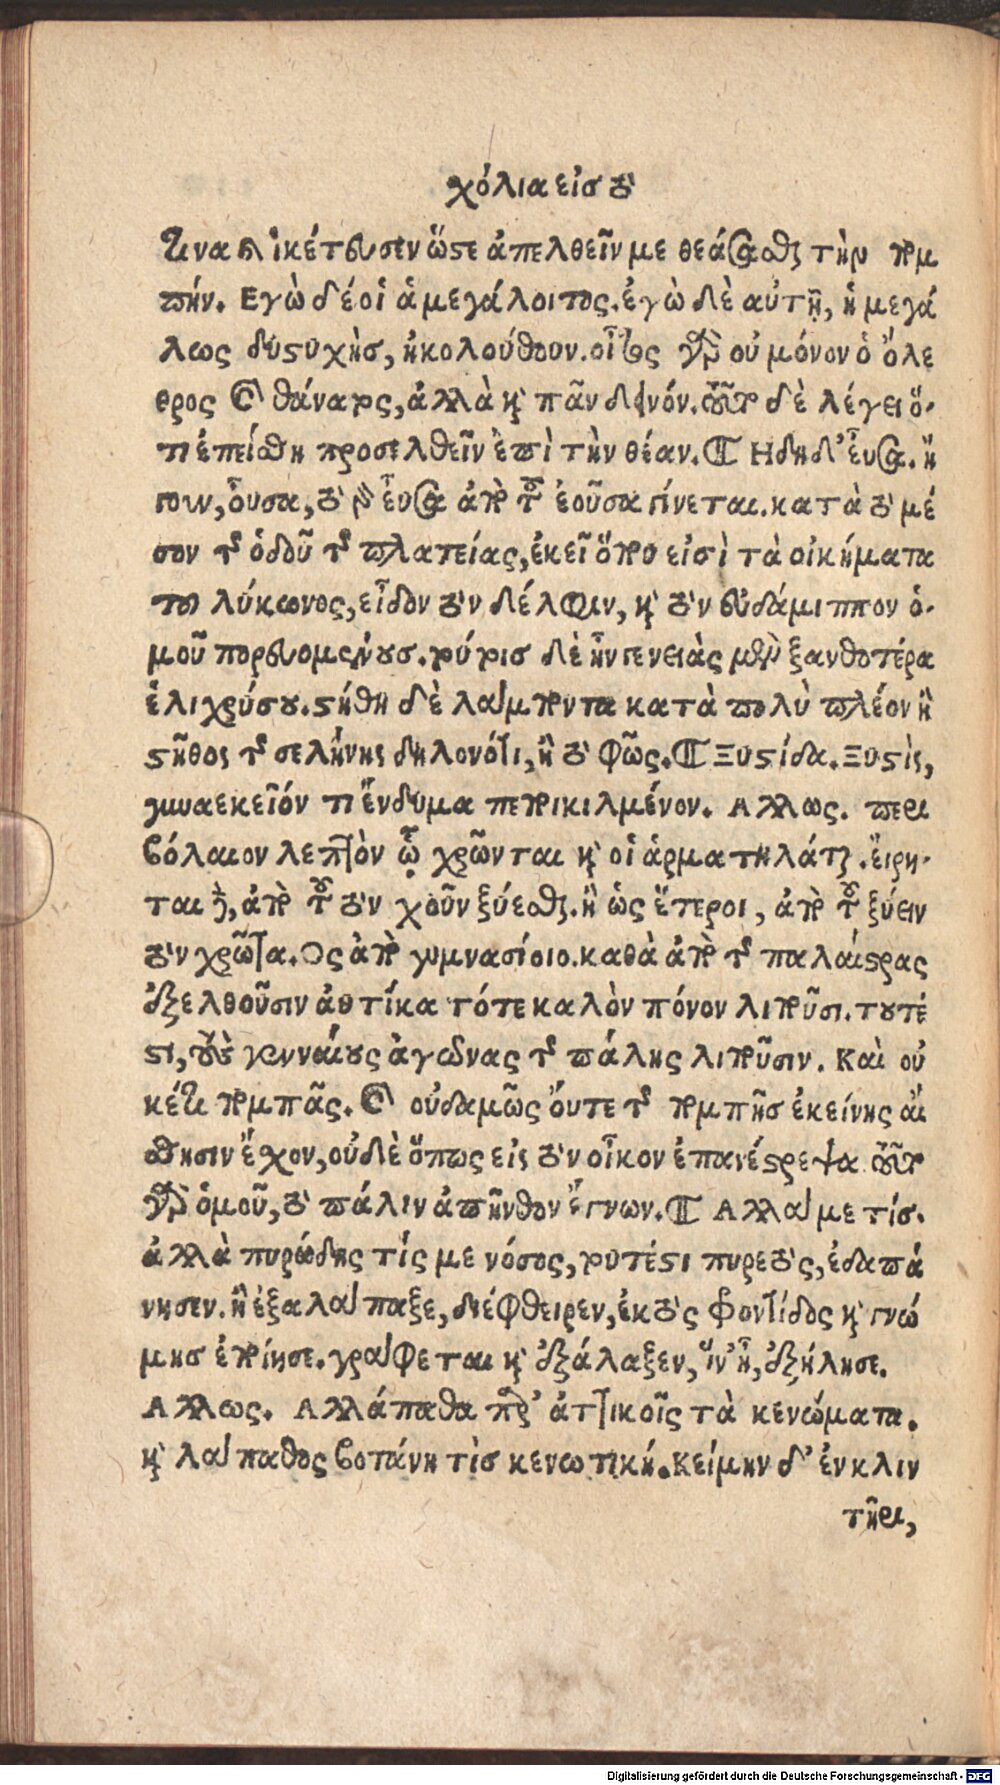 χόλια εἰσ τὸ
τινα καὶ ἱκέτευσεν ὥστε ἀπελθεῖν με θεάσασθαι τὴν πομ
πήν. Εγὼ δέ οἱ ἁ μεγάλοιτος. ἐγὼ δὲ αὐτῇ, ἡ μεγά
λως δυστυχὴσ, ἠκολούθουν. οἶτος γὰρ οὐ μόνον ὁ ὄλε
θρος καὶ θάνατος, ἀλλὰ καὶ πᾶν δεινόν. τοῦτο δὲ λέγει ὅ-
τι ἐπείσθη προσελθεῖν ἐπὶ τὴν θέαν. ¶ Ηδη δ' εὖσα. ἤ
γουν, οὖσα, τὸ δὲ εὖσα ἀπὸ τοῦ ἐοῦσα γίνεται. κατὰ τὸ μέ
σον τῆς ὁδοῦ τῆς πλατείας, ἐκεῖ ὅπου εἰσὶ τὰ οἰκήματα
του λύκωνος, εἶδον τὸν δέλφιν, καὶ τὸν εὐδάμιππον ὁ-
μοῦ πορευομένουσ. τούτοισ δὲ ἦν γενειὰς μὲν ξανθοτέρα
ἑλιχρύσου. στήθη δὲ λάμποντα κατὰ πολὺ πλέον ἢ
στῆθος τῆς σελήνης δηλονότι, ἢ τὸ φῶς. ¶ Ξυστίδα. Ξυστὶς,
γυναεκεῖόν τι ἔνδυμα πεποικιλμένον. Αλλως. περι
βόλαιον λεπτὸν ᾧ χρῶνται καὶ οἱ ἁρματηλάται. εἴρη-
ται δὲ, ἀπὸ τοῦ τὸν χοῦν ξύεσθαι. ἢ ὡς ἕτεροι, ἀπὸ τοῦ ξύειν
τὸν χρῶτα. Ως ἀπὸ γυμνασίοιο. καθὰ ἀπὸ τῆς παλαίστρας
ἐξελθοῦσιν ἀθτίκα τότε καλὸν πόνον λιποῦσι. τουτέ
στι, τοὺς γενναίους ἀγῶνας τῆς πάλης λιποῦσιν. Καὶ οὐ
κέτι πομπᾶς. καὶ οὐδαμῶς ὄυτε τῆς πομπῆσ ἐκείνης αἴ
σθησιν ἔχον, οὐδὲ ὅπως εἰς τὸν οἶκον ἐπανέστρεψα. τοῦτο
γὰρ ὁμοῦ, τὸ πάλιν ἀπῆνθον ἔγνων. ¶ Αλλά με τίσ.
ἀλλὰ πυρώδης τίς με νόσος, τουτέστι πυρετὸς, ἐδαπά
νησεν. ἢ ἐξαλάπαξε, διέφθειρεν, ἐκτὸς φροντίδος καὶ γνώ
μησ ἐποίησε. γράφεται καὶ ἐξάλαξεν, ἵν' ᾖ, ἐξήλησε.
Αλλως. Αλλάπαθα παρ' ἀττικοῖς τὰ κενώματα.
καὶ λάπαθος βοτάνη τὶσ κενωτική. Κείμην δ' ἐν κλιν
τῆρι,
Digitalisierung gefördert durch die Deutsche Forschungsgemeinschaft - DFG